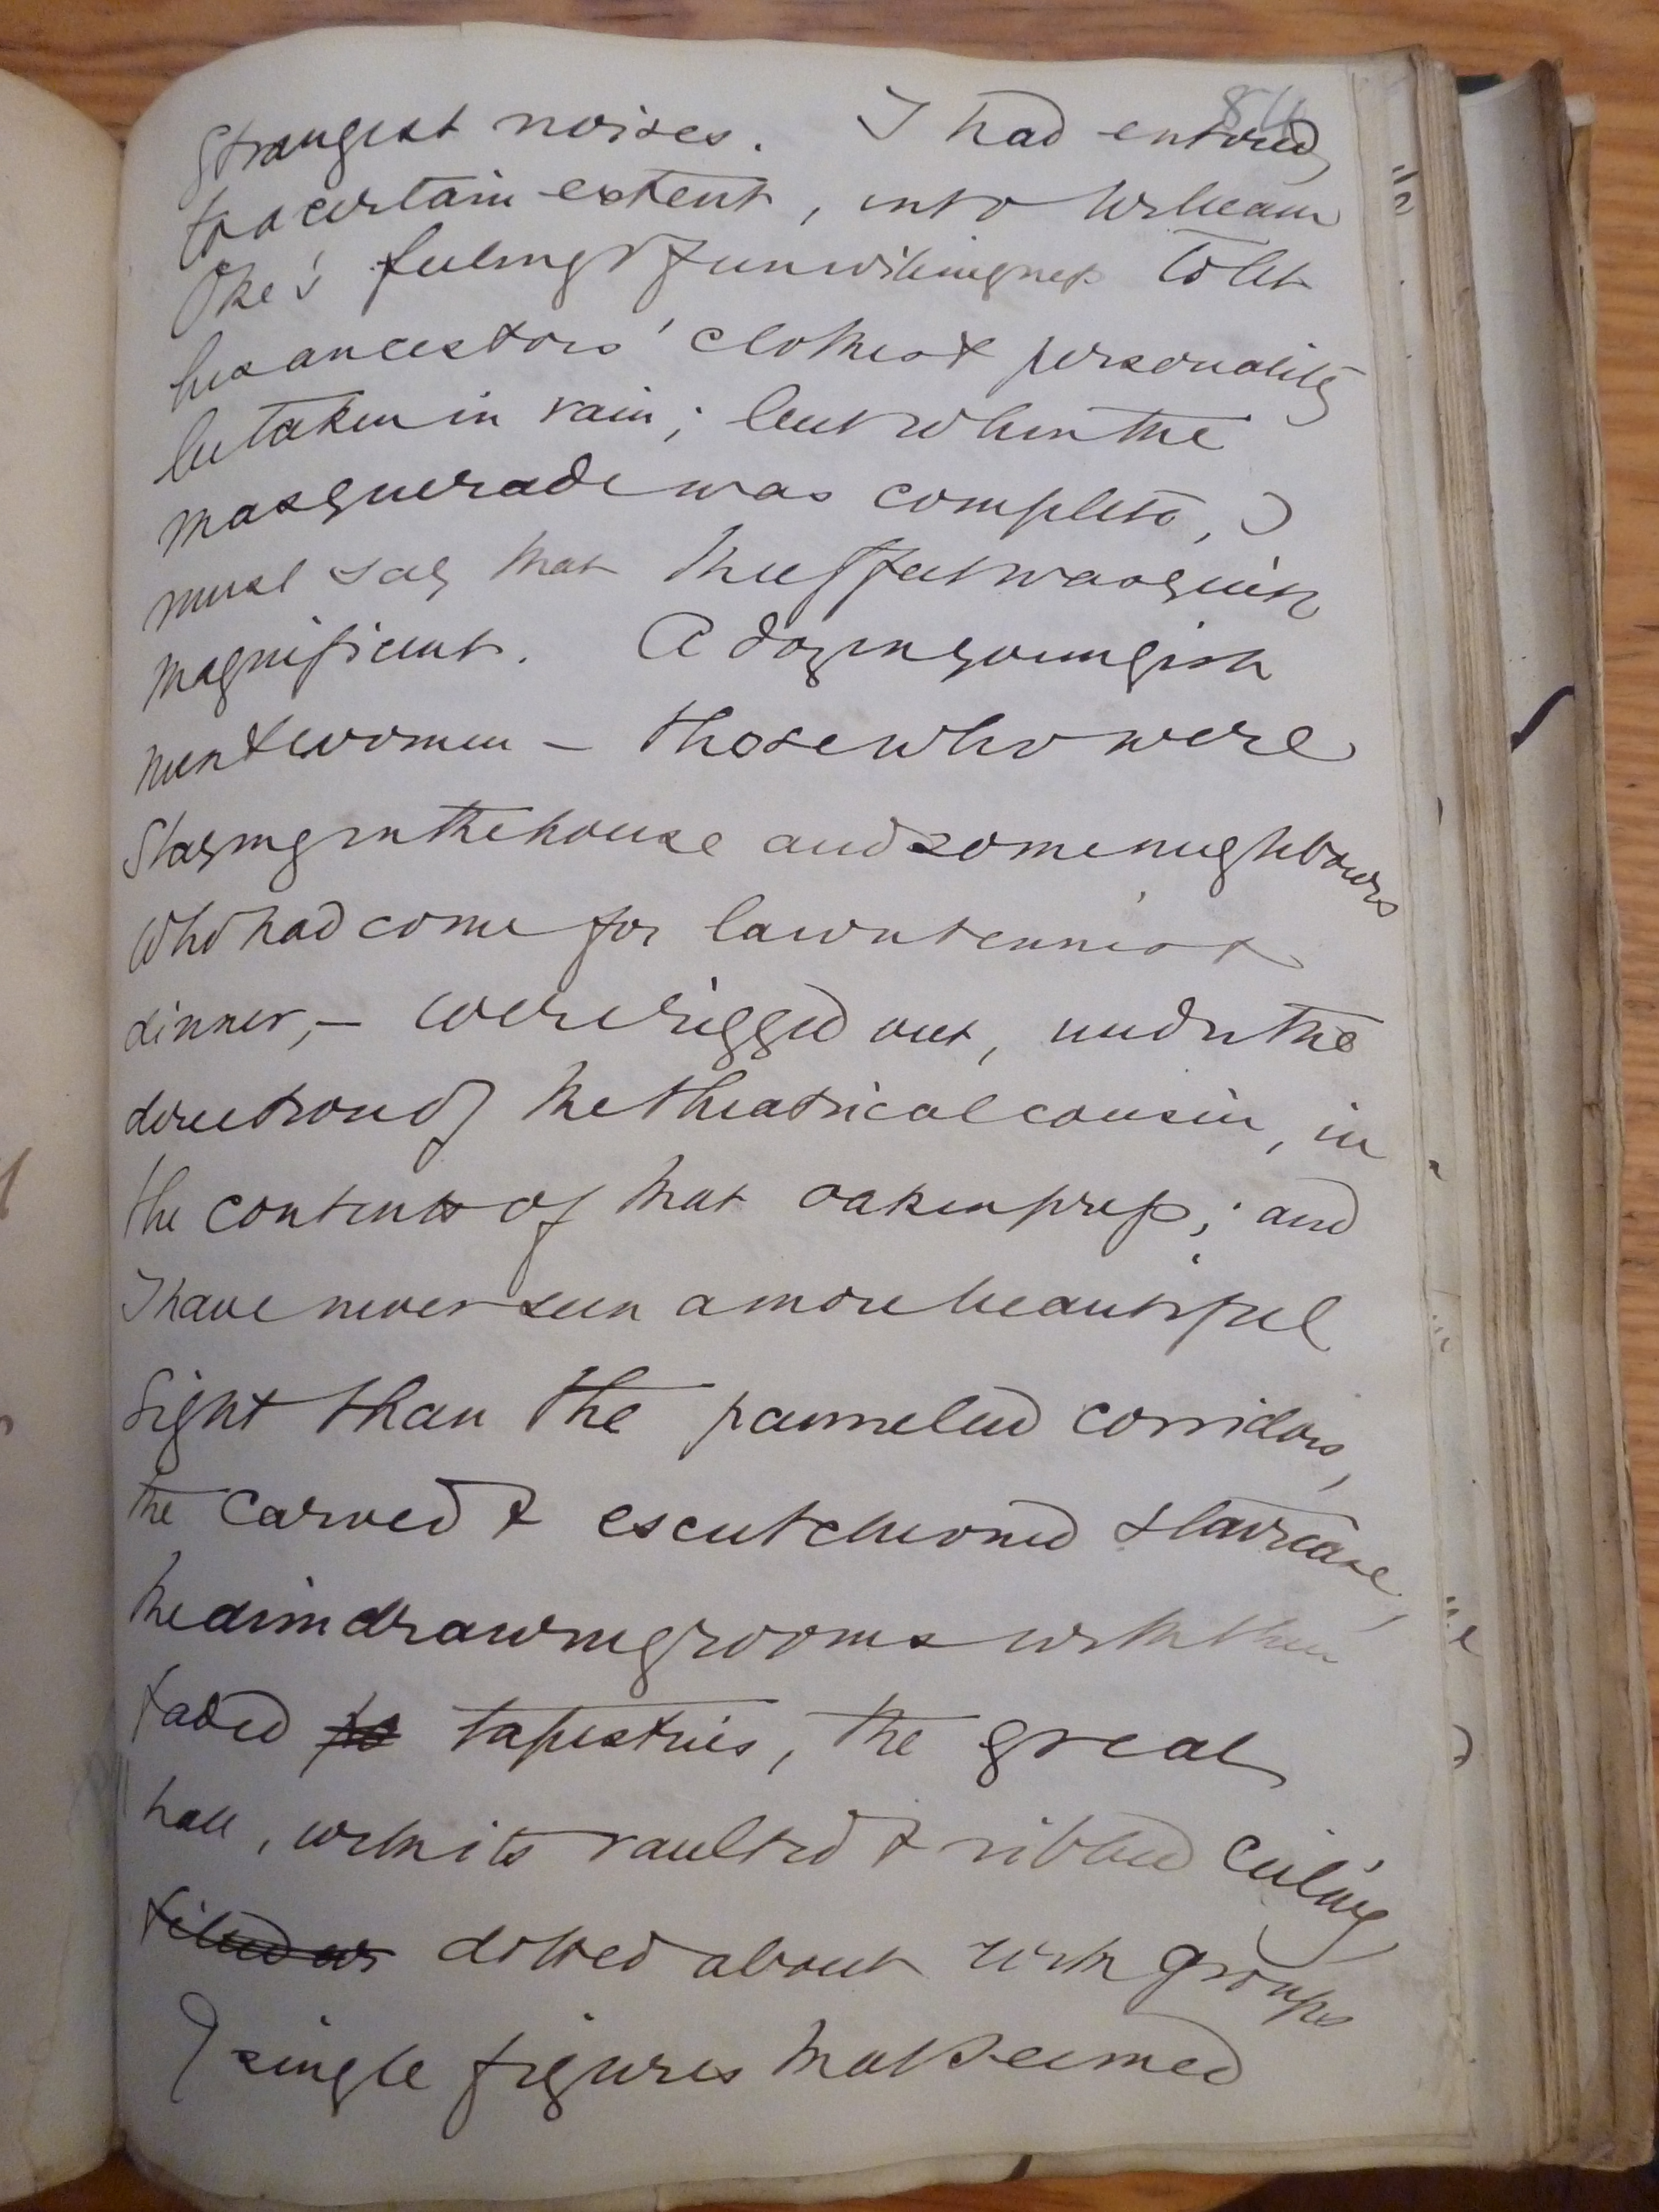 84
strangest noises. I had entered,
to a certain extent, into William
Oke's feeling of unwillingness to let
his ancestors' clothes & personality
be taken in vain; but when the
masquerade was complete, I
must say that the effect was quite
magnificent. A dozen youngish
men & women – those who were
staying in the house and some neighbours
who had come for lawn tennis &
dinner, – were rigged out, under the
direction of the theatrical cousin, in
the contents of that oaken press; and
I have never seen a more beautiful
sight than the pannelled corridors,
the carved & escutcheoned staircase,
the dim drawing rooms with their
faded tapestries, the great
hall, with its vaulted & ribbed ceiling
dotted about with groups
of single figures that seemed